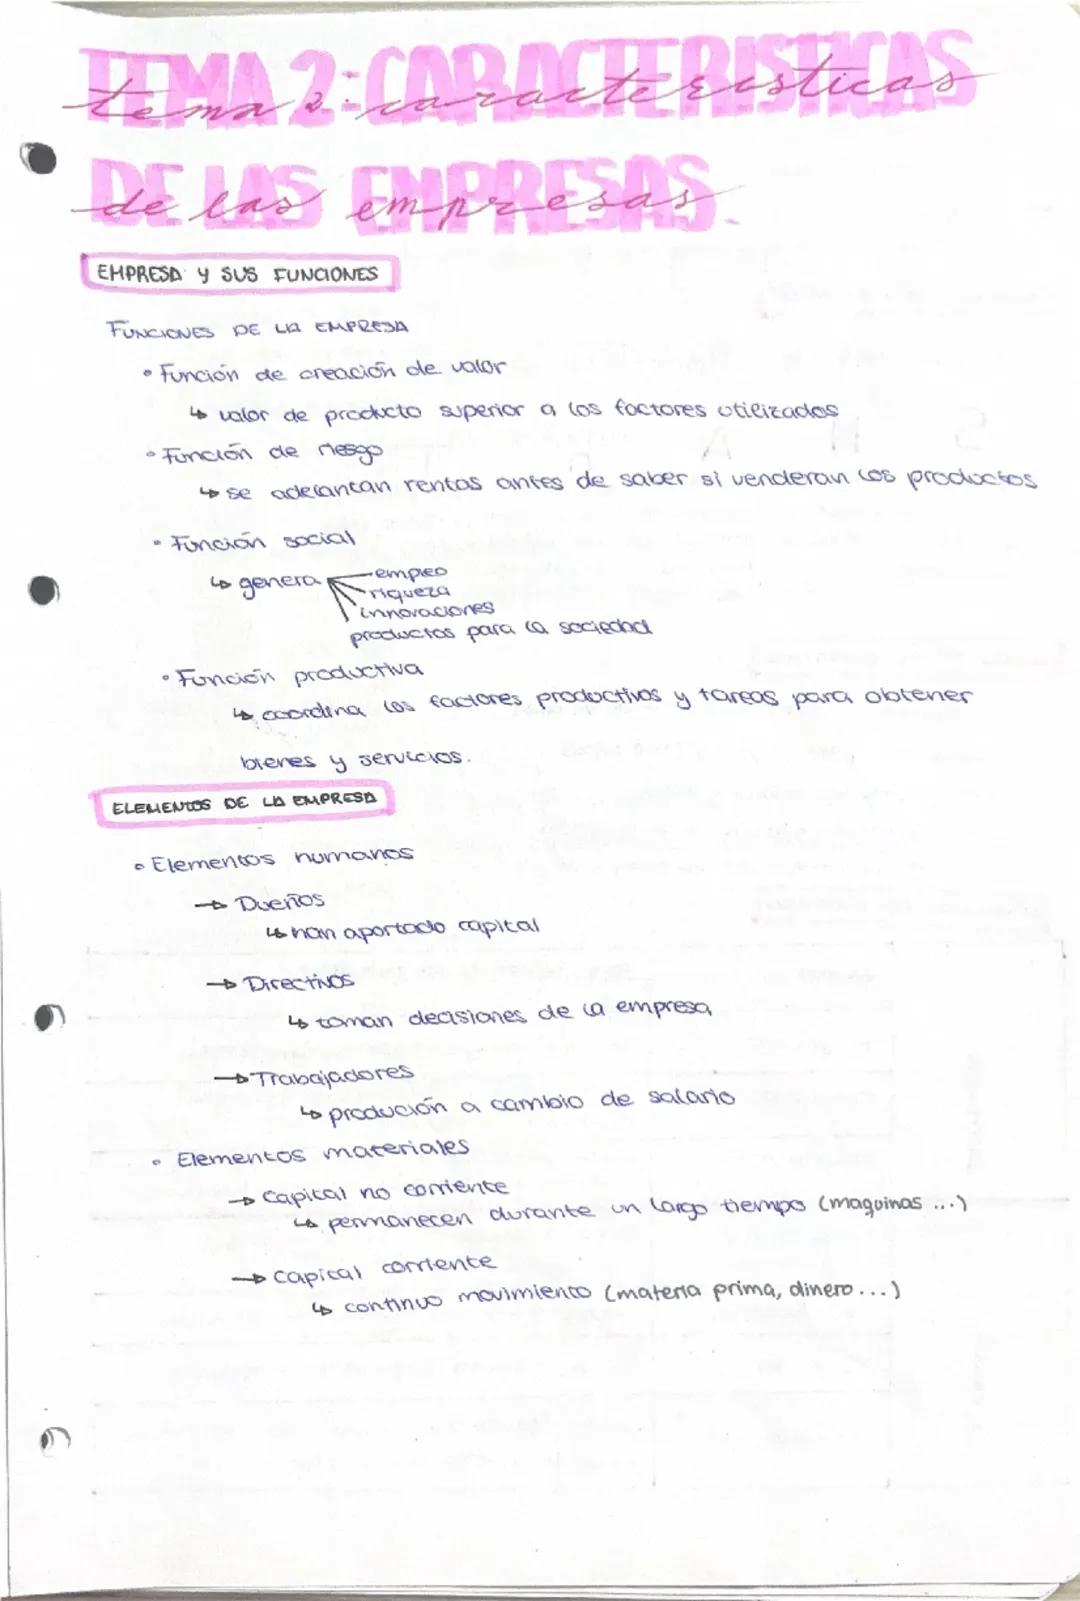 TEMA 2: CARACTERISTICAS
tema 2: caracteristicas
DE LAS EMPRESAS
de las empresas.
EMPRESA Y SUS FUNCIONES
FUNCIONES DE LA EMPRESA
• Función de creación de valor
↳ valor de producto superior a los factores utilizados
• Función de riesgo
↳ se adelantan rentas antes de saber si venderan los productos
• Función social
↳ genera
empleo
riqueza
innovaciones
productos para la sociedad
• Función productiva
↳ coordina los factores productivos y tareas para obtener
bienes y servicios.
ELEMENTOS DE LA EMPRESA
• Elementos humanos
→ Dueños
↳ han aportado capital
→ Directivos
↳ toman decisiones de la empresa
→ Trabajadores
↳ produción a cambio de salario
• Elementos materiales
→ Capital no corriente
↳ permanecen durante un largo tiempo (maquinas ...)
→ Capital corriente
↳ continuo movimiento (materia prima, dinero...)